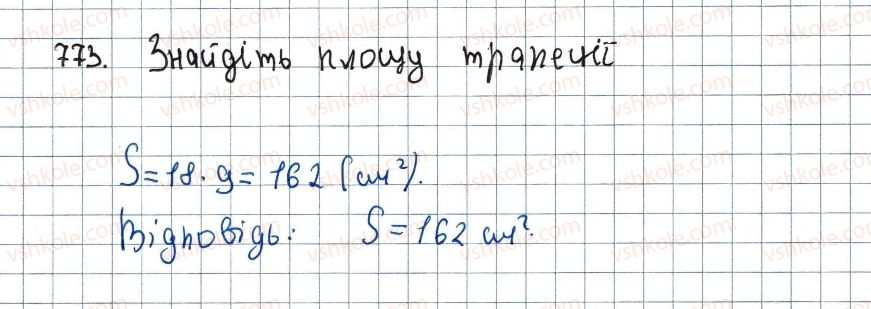 773. Знайдіть площу трапеції
S = 18 · 9 = 162 (см²).
Відповідь: S = 162 см².